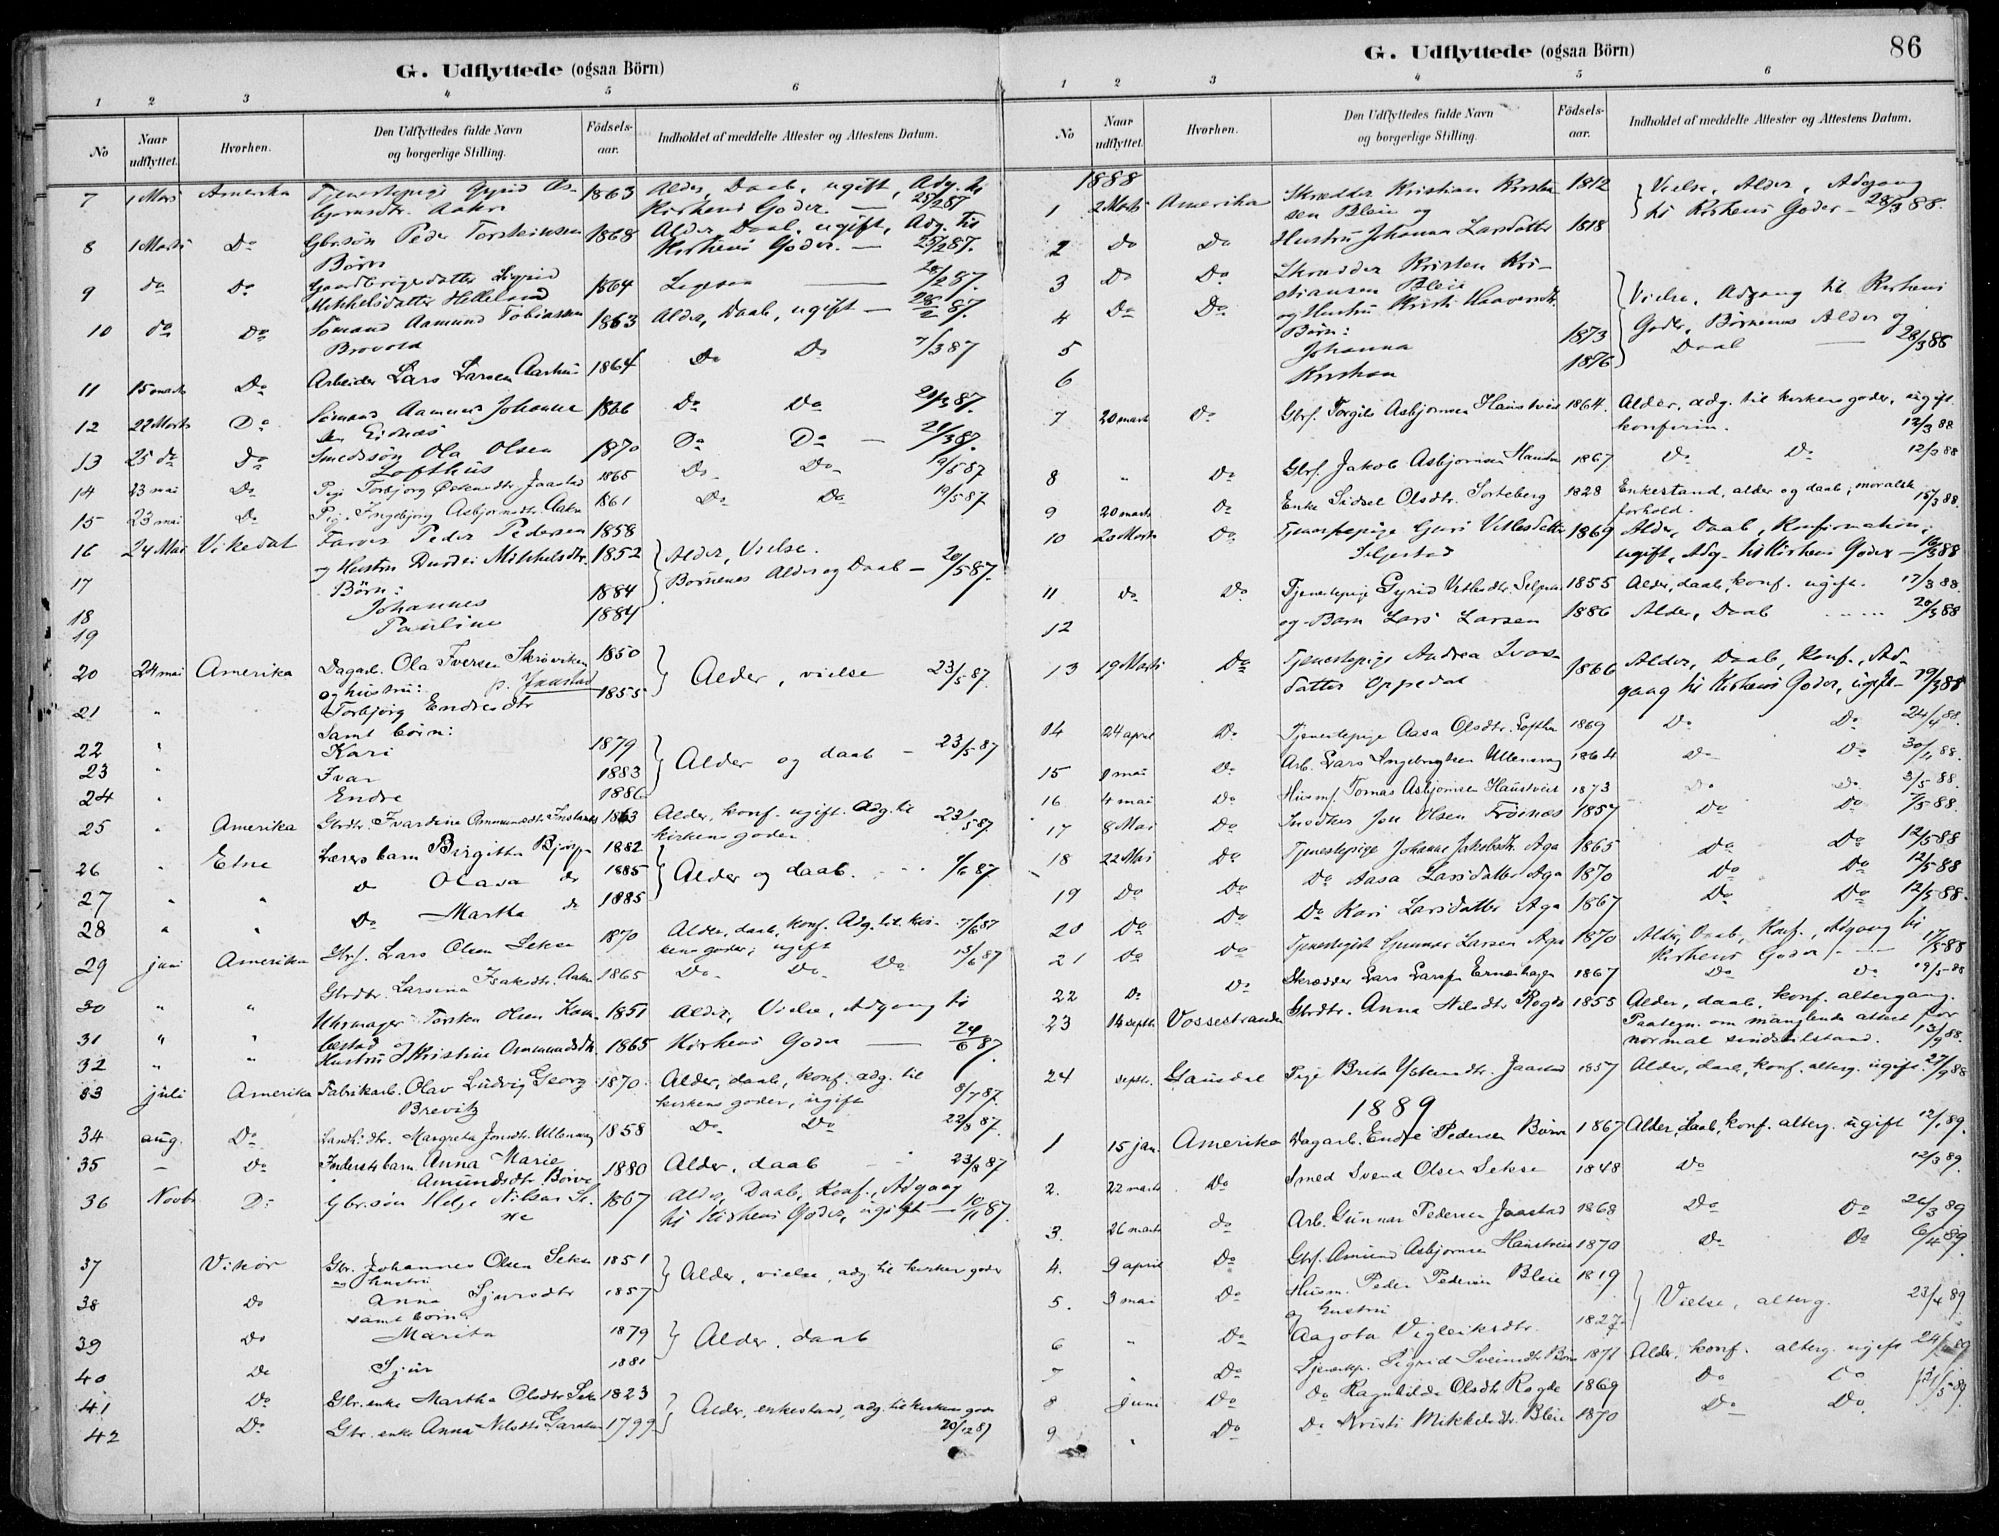 G. Udflyttede (ogsaa Börn)
1 2 3 4 5 6
No Naar udflyttet. Hvorhen. Den Udflyttedes fulde Navn og borgerlige Stilling. Födsels-aar. Indholdet af meddelte Attester og Attestens Datum.
7 1 Mars Amerika Tjenestepige Gyrid As- 1863 Alder, Daab, ugift, Adg. til
bjørnsdtr. Aakre Kirkens Goder — 25/2 87
8 1 Marts Do Gbrsøn Peder Torsteinsen 1868 Alder, Daab, ugift, Adg. til
Børve Kirkens Goder. — 25/2 87.
9 do Do Gaardbrugerdatter Sigrid 1864 Ligesaa — 28/2 87.
Mikkelsdatter Helleland
10 do Do Sømand Aamund Tobiassen 1863 Alder, Daab, ugift — 28/2 87.
Brovold 7/3 87
11 15 marts Do Arbeider Lars Larsen Aarhus 1864 Do Do
12 22 Marts Do Sømand Aamund Johanne- 1866 Do Do 21/3 87.
sen Eidnæs
13 25 do Do Smedsøn Ola Olsen 1870 Do Do — 21/3 87.
Lofthus
14 23 mai Do Pige Torbjorg Jaastad 1865 Do Do 19/5 87
15 23 mai Do Pige Ingebjørg Asbjørnsdtr. Aakre 1861 Do Do 19/5 87.
16 24 Mai Vikedal Farver Peder Pedersen 1858
17 og Hustru Mikkelsdtr. 1852 Alder, Vielse.
Børn: Børnenes Alder og Daab — 20/5 87.
18 Johannes 1884
19 Pauline 1884
20 24 mai Amerika Dagarb. Ola Iversen Skrøviken 1850
og hustru: p. Jaastad Alder, vielse 23/5 87.
21 " Torbjørg Endresdtr 1855
samt børn:
22 " Kari 1879
23 " Ivar 1883 Alder og daab — 23/5 87
24 " Endre 1886
25 " Amerika Gbrdtr. Ivardine Ommundsdtr. 1863 Alder, konf. ugift. adg. til 23/5 87
kirkens goder
26 " Etne Lærers barn Birgitta 1882
27 " " Do Olava do 1885 Alder og daab. 1/6 87
28 " " Do Martha do 1885
29 juni Amerika Gbrs. Lars Olsen Sekse 1870 Alder, daab, konf. Adg. til kir- 7/6 87
kens goder; ugift
30 " " Gbrdtr. Larsina Isaksdtr. Aakre 1865 Do Do Do 13/6 87
31 " " Uhrmager Torsten Olsen 1851 Alder, Vielse, Adgang til
og
32 " " Hustru Kristine Ommundsdtr. 1865 Kirkens Goder — 24/6 87
33 juli Amerika Fabrikarb. Olav Ludvig Georg 1870. Alder, daab, konf. adg. til
Brevitz kirkens goder, ugift 8/7 87.
34 aug. Do Margreta Jonsdtr. Ullensvang 1858 Do Do 22/8 87.
35 — Do Inderstbarn Anna Marie 1880 Alder, daab 23/8 87
Amundsdtr. Børve
36 Novbr Do Gbrsøn Helje Nilsen Se- 1867 Alder, Daab, Konf., Adgang
xe til Kirkens Goder, ugift — 10/11 87.
37 Vikør Gbr. Johannes Olsen Sekse 1851
og hustru Alder, vielse, adg. til kirkens goder
38 Do Anna Sjursdtr 1857
samt børn
39 Do Marita 1879 Alder, daab
40 Do Sjur 1881
41 Do Gbr. enke Martha Olsdtr Sekse 1823 Alder, enkestand, adg. til kirkens goder
42 Do Gbr. enke Anna Nilsdtr 1799 20/12 87
G. Udflyttede (ogsaa Börn) 86
1 2 3 4 5 6
No Naar udflyttet. Hvorhen. Den Udflyttedes fulde Navn og borgerlige Stilling. Födsels-aar. Indholdet af meddelte Attester og Attestens Datum.
1888
1 2 Marts Amerika Skrædder Kristian Kristen- 1812 Vielse, Alder, Adgang
sen Bleie og til Kirkens Goder — 28/3 88.
2 Do Do Hustru Johanna Larsdatter 1818
3 Do Do Skrædder Kristen Kri-
stiansen Bleie Vielse, Adgang til Kirkens
4 Do Do og Hustru Kristi
Børn: Goder, Børnenes Alder og
5 Johanna 1873 Daab — 28/3 88
6 Kristian 1876
7 20 marts Do Gbrs. Torgils Asbjørnsen Haustveit 1864. Alder, adg. til kirkens goder, ugift.
konferm. 12/3 88
8 " Do Gbrs. Jakob Asbjørnsen 1867 Do Do 12/3 88
9 20 marts Do Enke Sidsel Olsdtr. Sorteberg 1828 Enkestand, alder og daab; moralsk 15/3 88.
forhold.
10 20 Marts Do Tjenestepige Guri Vetlesdatter 1869 Alder, Daab, Konfirmation,
Seljestad ugift, Adg. til Kirkens Goder — 16/3 88
11 Do Do Tjenestepige Gyrid Vetlesdtr. 1855 Alder, daab, konf. ugift. 17/3 88.
12 og Barn Lars Larsen 1886 Alder, Daab 20/3 88
13 19 Marts Do Tjenestepige Andrea Ivars- 1866 Alder, Daab, Konf., Ad-
datter Oppedal gang til Kirkens Goder, ugift — 19/3 88
14 24 april Do Tjenestepige Aasa Olsdtr. Lofthus 1869 Do Do 24/4 88.
15 1 mai Do Arb. Lars Ingebrigtsen Ullensvang 1864 Do Do 30/4 88.
16 4 mai Do Husmf. Tomas Asbjørnsen Haustveit 1873 Do Do 3/5 88.
17 8 Mai Do Snedker Jon Olsen Frøinæs 1857 Do Do 7/5 88.
18 22 Mai Do Tjenestepige Johanne Jakobsdtr. Aga 1865 Do Do 12/5 88
19 Do Do Do Aasa Larsdatter Aga 1870 Do Do 12/5 88
20 Do Do Do Kari Larsdatter Aga 1867 Do Do 12/5 88.
21 Do Do Gunnar Larsen Aga 1870 Alder, Daab, Konf., Adgang til
Kirkens Goder — 17/5 88
22 Do Do Skrædder Lars Larsen 1867 Do Do 19/5 88
23 14 septbr. Vossestranden Gbrdtr. Anna Nilsdtr Rogde 1855 Alder, daab, konf. altergang.
Paategn. om manglende attest for
normal sindstilstand. 13/9 88.
24 septbr. Gausdal Pige Brita Jaastad 1857 Alder, daab, konf. alterg. ugift. 27/9 88
1889
1 15 jan. Amerika Dagarb. Endre Pedersen Børve 1867 Alder, daab, konf. alterg. ugift 12/1 89.
2. 22 marts Do Smed Svend Olsen Sekse 1848 Do 12/3 89.
3. 26 marts do Arb. Gunnar Pedersen Jaastad 1868 Do Do 26/3 89
4. 9 april Do Gbrs. Amund Asbjørnsen Haustveit 1870 Do Do 6/4 89
5. 3 mai Do Husm. Peder Pedersen Bleie 1819
og hustru Vielse, alterg. 23/4 89.
6 " Do Aagota Vigleiksdtr. 1827
7 " Do Tjenestep. Sigrid Sveinsdtr Børve 1871 Alder, konf. alterg. ugift
8 Juni Do Do Ragnhilde Olsdtr Rogde 1869 Do Do
9 " Do Do Kristi Mikkelsdtr. Bleie 1870 Do Do